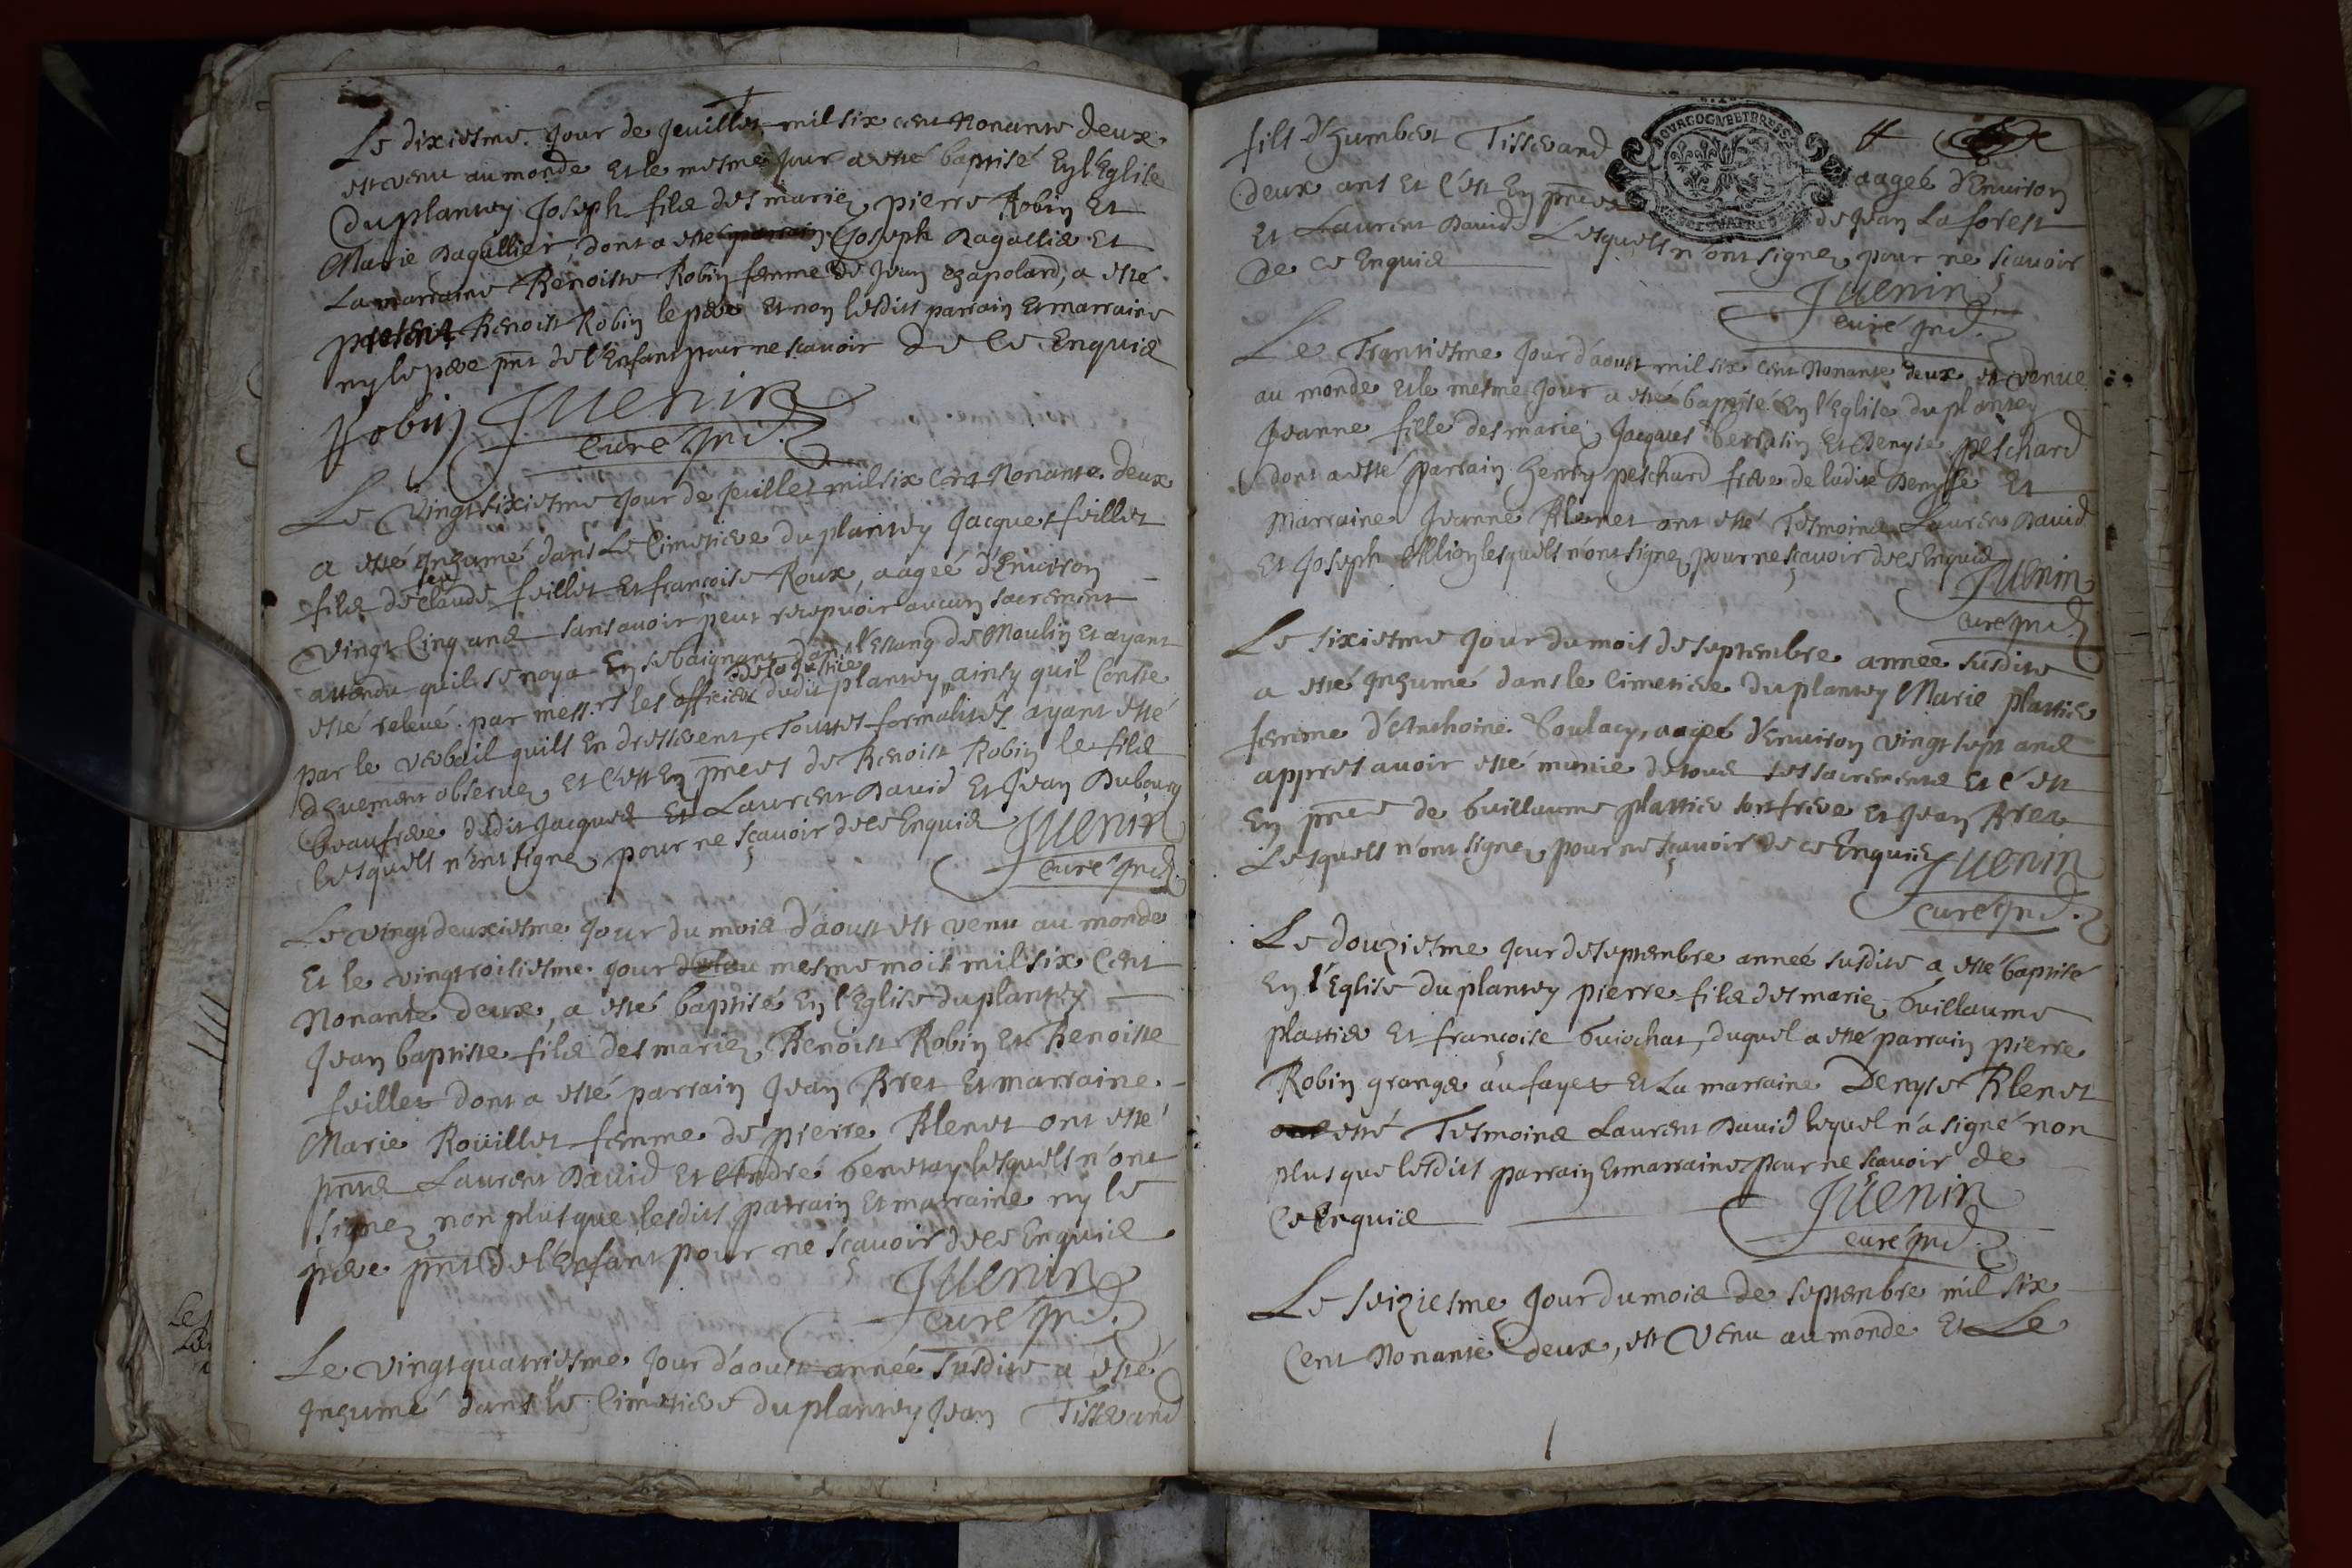 Le dixiesme Jour de Jeuillet mil six cent Nonante deux
est venu au monde Et le mesme Jour a esté baptisé En l'Eglise
du plantey Joseph fils des mariez pierre Robin Et
Marie Dagallier, dont a esté parrain Joseph Dagallier Et
La marraine Benoiste Robin femme de Jean Chapoland, a esté
present Benoist Robin le pere Et non lesdits parrain Et marraine
ny le pere pnt de l'Enfant pour ne scavoir de ce Enquis
Robin Juenin
curé Ind.
Le vingt sixiesme Jour de Jeuillet mil six cent Nonante deux
a esté Inhumé dans Le Cimetiere du plantey Jacques feillet
fils de feu claude feillet Et françoise Roux, aageé d'Environ
vingt Cinq ans sans avoir peut recepvoir aucun sacrement
attendu quil se noya En se baignant dans l'Estang de Moulin Et ayant
esté relevé par mess.rs les officiers de la Justice dudit plantey, ainsy quil Conste
par le verbail quils En dresserent, Toutes formalités ayant esté
deuement observez, Et c'est En pnces de Benoist Robin le fils
beaufrere dudit Jacques Et Laurent David Et Jean Dubourg
lesquels n'ont signez pour ne sçavoir de ce Enquis Juenin
curé Ind.
Le vingt deuxiesme Jour du mois d'aoust est venu au monde
Et le vingt roisiesme Jour du mesme mois mil six Cent
Nonante deux, a esté baptisé En l'Eglise du plantey
Jean baptiste fils des mariez Benoist Robin Et Benoiste
feillet dont a esté parrain Jean Bret Et marraine
Marie Roüillet femme de pierre Blenet ont esté
pnts Laurent David Et André benetay lesquels n'ont
signez non plus que lesdits parrain Et marraine ny le
pere pnt de l'Enfant pour ne sçavoir de ce Enquis
Juenin
curé Ind.
Le vingt quatriesme Jour d'aoust année susdite a esté
Inhumé dans le Cimetiere du plantey Jean Tisserand
fils d'humbert Tisserand aageé d'Environ
BOURGOGNE ET BRESSE
deux ans Et c'est En pnces de Jean Laforest
Et Laurent David Lesquels n'ont signez pour ne sçavoir
de ce Enquis
Juenin
curé Ind.
Le Trantiesme Jour d'aoust mil six cent Nonante deux est venue
au monde Et le mesme Jour a esté baptisé En l'Eglise du plantey
Jeanne fille des mariez Jacques berratin Et Denyse peschard
dont a esté parrain henry peschard frere de ladite Denyse Et
Marraine Jeanne Blenet ont esté Tesmoins Laurent David
Et Joseph Allion lesquels n'ont signez pour ne sçavoir de ce Enquis
Juenin
curé Ind.
Le sixiesme Jour du mois de septembre année susdite
a esté Inhumé dans le Cimetiere du plantey Marie plattier
femme d'Anthoine Coulacy, aageé d'Environ vingt sept ans
appres avoir esté munie de tous ses sacrements Et c'est
En pnce de Guillaume plattier son frere Et Jean Bret
Lesquels n'ont signez pour ne sçavoir de ce Enquis Juenin
curé Ind.
Le douziesme Jour de septembre année susdite a esté baptisé
En l'Eglise du plantey pierre fils des mariez Guillaume
plattier Et françoise Guiochat, duquel a esté parrain pierre
Robin granger au fayet Et La marraine Denyse Blenet
esté Tesmoins Laurent David lequel n'a signé non
plus que lesdits parrain Et marraine pour ne sçavoir de
Ce Enquis
Juenin
curé Ind.
Le seiziesme Jour du mois de septembre mil six
Cent Nonante deux, est venu au monde Et Le